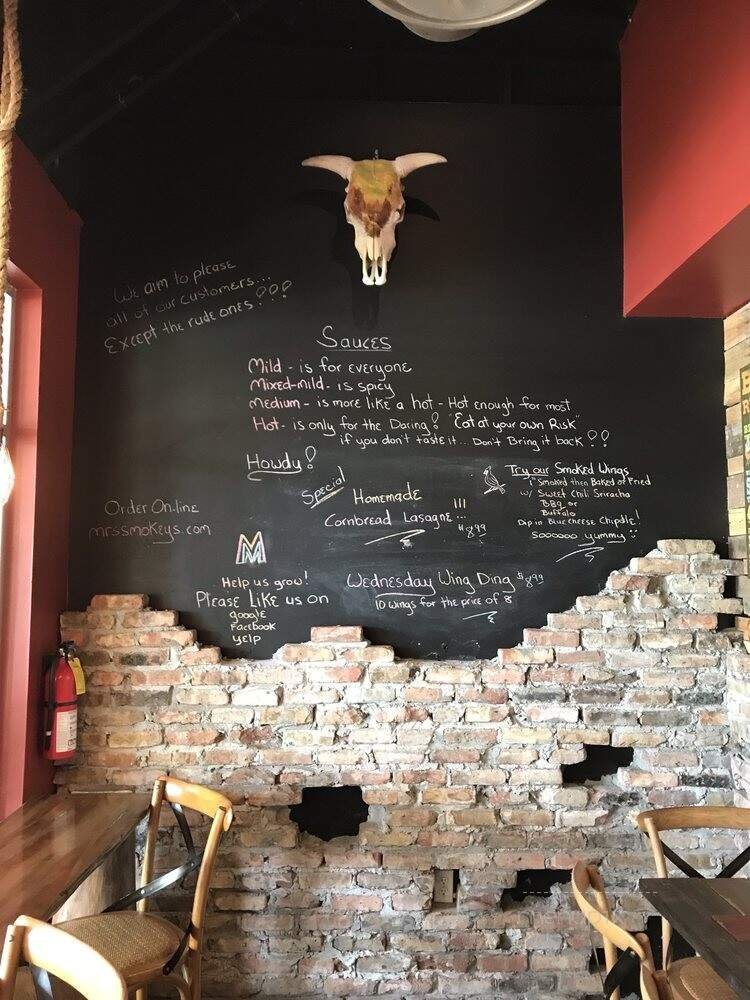 We aim to please
all of our customers...
Except the rude ones!!!
Sauces
Mild - is for everyone
Mixed-mild - is spicy
Medium - is more like a hot - Hot enough for most
Hot - is only for the Daring! "Eat at your own Risk"
if you don't taste it... Don't Bring it back!!
Howdy!
Special
Homemade
Cornbread Lasagne !!!
$8.99
Try our Smoked Wings
Smoked then Baked or Fried
w/ Sweet Chili Sriracha
BBQ or
Buffalo
Dip in Blue cheese Chipotle!
Soooooo yummy
Order On-line
mrssmokeys.com
M
Help us grow!
Please Like us on
google
Facebook
yelp
Wednesday Wing Ding $8.99
10 wings for the price of 8